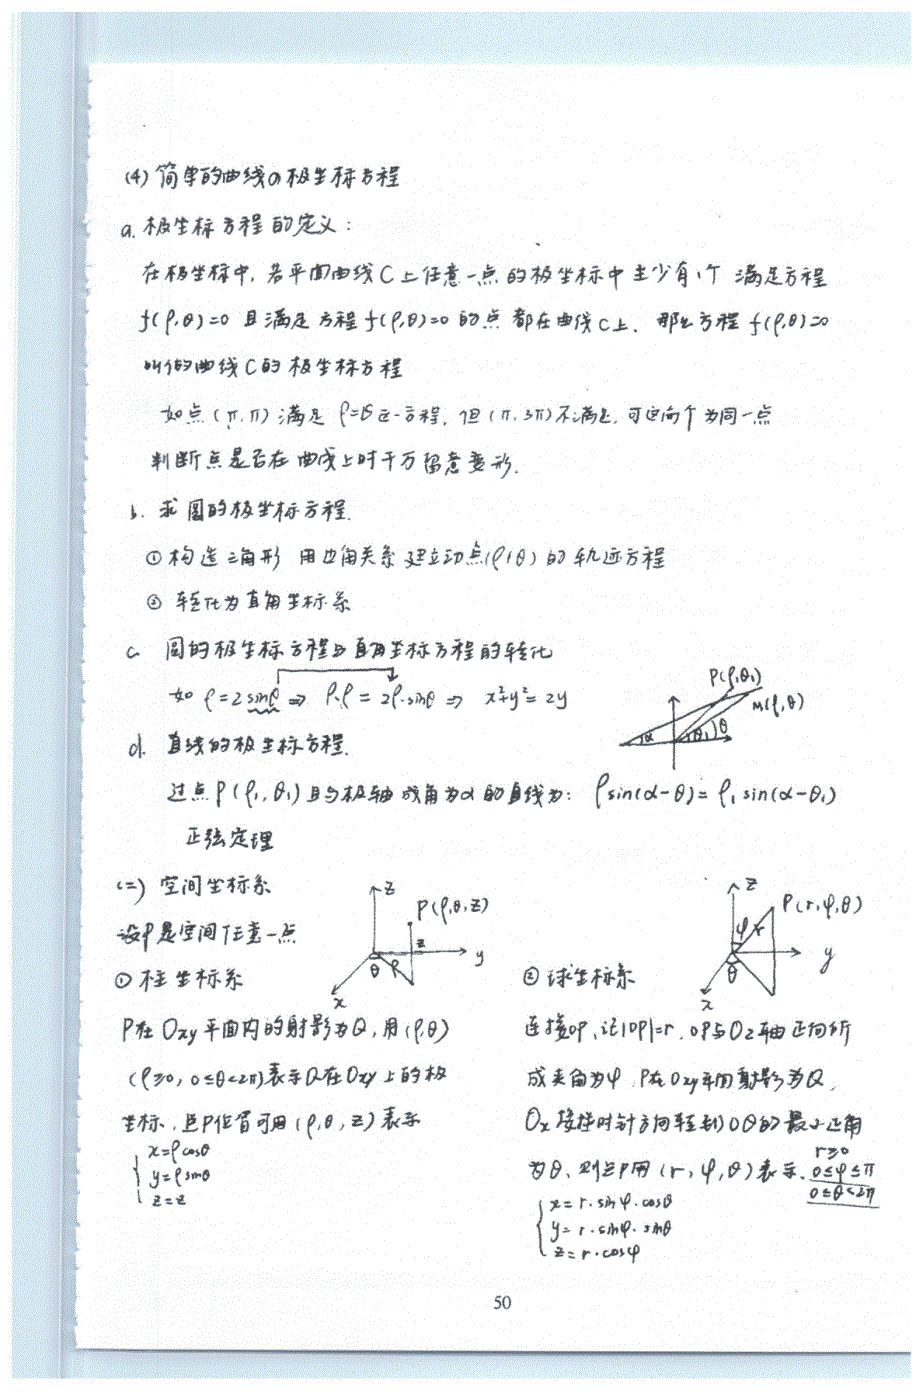 (4) 简单的曲线的极坐标方程
a. 极坐标方程的定义:
在极坐标中, 若平面曲线C上任意一点的极坐标中至少有1个 满足方程
f(ρ,θ)=0 且满足方程 f(ρ,θ)=0 的点 都在曲线C上. 那么方程 f(ρ,θ)=0
叫作曲线C的极坐标方程
如点 (π,π) 满足 ρ=θ这一方程, 但 (π,3π)不满足, 可这两个为同一点
判断点是否在曲线上时千万留意变形.
b. 求圆的极坐标方程.
① 构造三角形 用边角关系 建立动点(ρ,θ) 的轨迹方程
② 转化为直角坐标系
c 圆的极坐标方程与直角坐标方程的转化
如 ρ=2sinθ ⇒ ρ·ρ = 2ρ·sinθ ⇒ x²+y²=2y
P(ρ₁θ₁)
M(ρ,θ)
α θ₁ θ
d. 直线的极坐标方程.
过点P(ρ₁,θ₁)且与极轴成角为α的直线为: ρsin(α-θ)=ρ₁sin(α-θ₁)
正弦定理
(二) 空间坐标系
设P是空间任意一点
z
P(ρ,θ,z)
z
y
θ ρ
x
z
P(r,φ,θ)
φ r
y
θ
x
① 柱坐标系
P在Oxy平面内的射影为Q,用(ρ,θ)
(ρ≥0, 0≤θ<2π)表示Q在Oxy上的极
坐标. 点P位置可用(ρ,θ,z)表示
x=ρcosθ
y=ρsinθ
z=z
② 球坐标系
连接OP,记|OP|=r, OP与Oz轴正向所
成夹角为φ. P在Oxy平面射影为Q,
Ox按逆时针方向转到OQ的最小正角
为θ. 则点P用(r,φ,θ)表示.
r≥0
0≤φ≤π
0≤θ<2π
x=r·sinφ·cosθ
y=r·sinφ·sinθ
z=r·cosφ
50